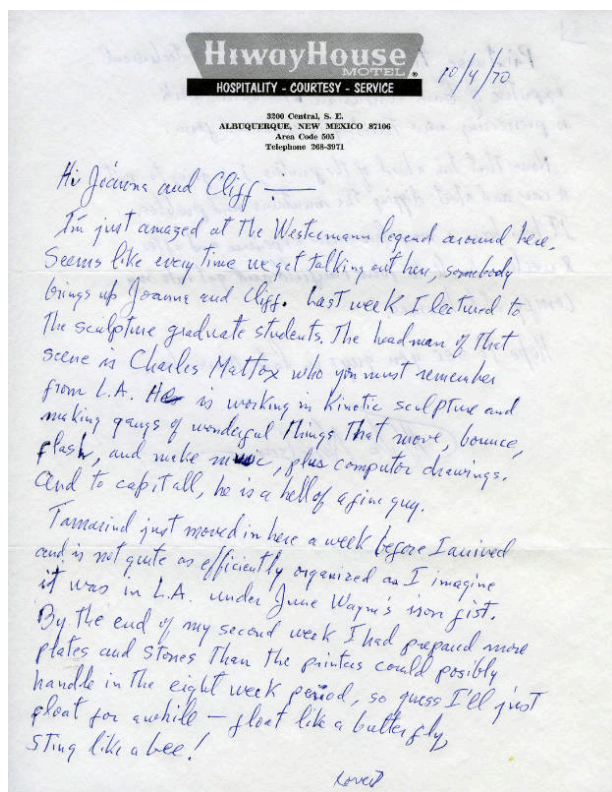 HIWAYHOUSE
MOTEL ®
HOSPITALITY - COURTESY - SERVICE
3200 Central, S. E.
ALBUQUERQUE, NEW MEXICO 87106
Area Code 505
Telephone 268-3971
10/4/70.
Hi Joanna and Cliff —
I'm just amazed at the Westermann legend around here.
Seems like every time we get talking out here, somebody
brings up Joanna and Cliff. Last week I lectured to
the sculpture graduate students. The headman of that
scene is Charles Mattox who you must remember
from L.A. He is working in kinetic sculpture and
making gangs of wonderful things that move, bounce,
flash, and make music, plus computor drawings.
And to cap it all, he is a hell of a fine guy.
Tamarind just moved in here a week before I arrived
and is not quite as efficiently organized as I imagine
it was in L.A. under June Wayne's iron fist.
By the end of my second week I had prepared more
plates and stones than the printers could posibly
handle in the eight week period, so guess I'll just
float for awhill — float like a butterfly,
sting like a bee!